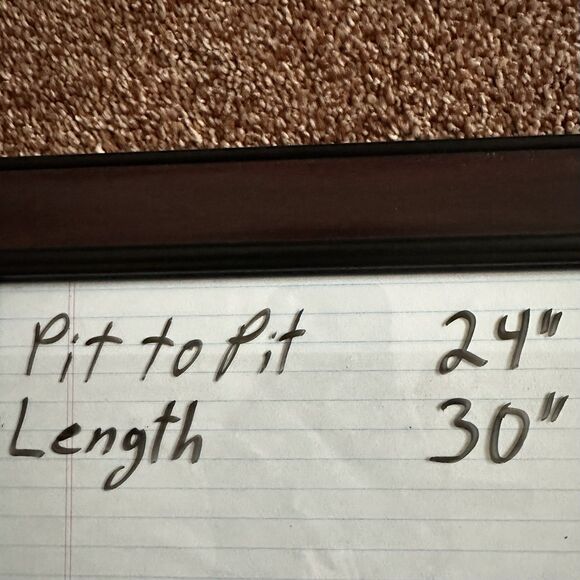 Pit to Pit 24"
Length 30"